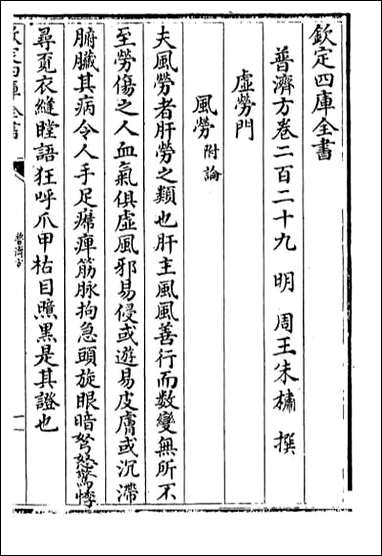 欽定四庫全書
普濟方卷二百二十九 明 周王朱橚 撰
虛勞門
風勞附論
夫風勞者肝勞之類也肝主風風善行而數變無所不
至勞傷之人血氣俱虛風邪易侵或遊易皮膚或沉滯
腑臟其病令人手足痲痺筋脉拘急頭旋眼暗多怒驚悸
尋覓衣縫瞠語狂呼爪甲枯目黶黑是其證也
欽定四庫全書
普濟方
一